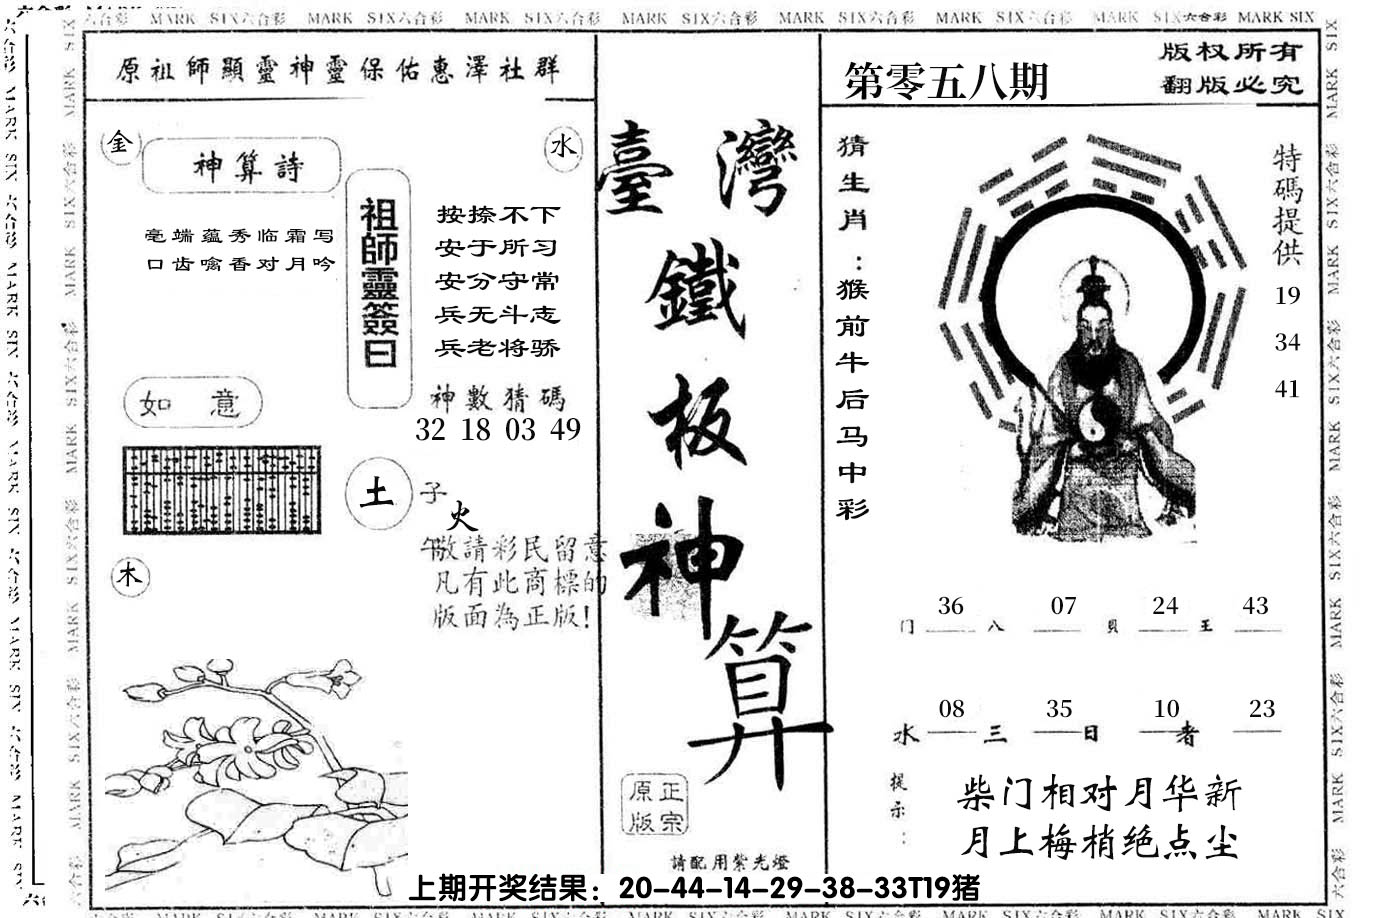 MARK SIX六合彩 MARK SIX六合彩 MARK SIX六合彩 MARK SIX六合彩 MARK SIX六合彩 MARK SIX六合彩 MARK SIX六合彩 MARK SIX
原祖師顯靈神靈保佑惠澤社群
金
水
神算詩
毫端蕴秀临霜写
口齿噙香对月吟
祖師靈簽曰
按捺不下
安于所习
安分守常
兵无斗志
兵老将骄
神數猜碼
32 18 03 49
如意
土
子
火
午
敬請彩民留意
凡有此商標的
版面為正版!
木
臺灣
鐵
板
神
算
正宗
原版
請配用紫光燈
第零五八期
版权所有
翻版必究
猜生肖:猴前牛后马中彩
特碼提供
19
34
41
36 07 24 43
门 八 貝 王
08 35 10 23
水 三 日 者
提示:
柴门相对月华新
月上梅梢绝点尘
上期开奖结果：20-44-14-29-38-33T19猪